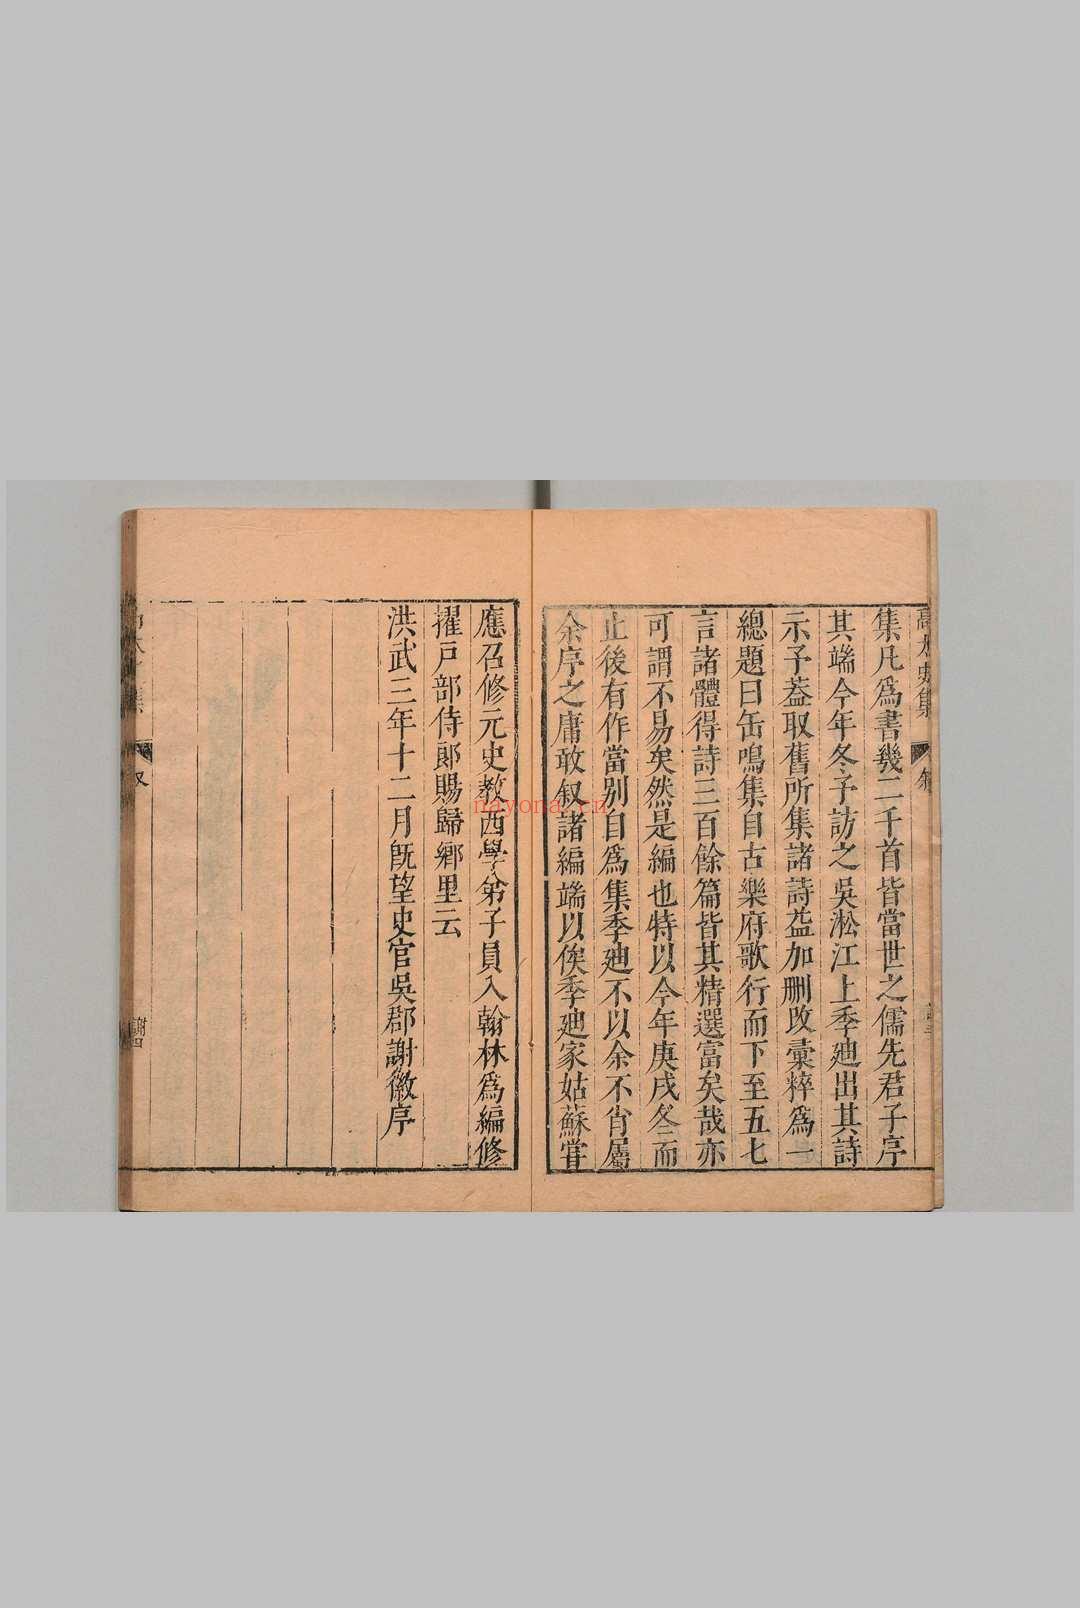 高太史集
叙
集凡爲書幾二千首皆當世之儒先君子序
其端今年冬予訪之吳淞江上季廸出其詩
示予葢取舊所集諸詩益加刪改彙粹爲一
總題曰缶鳴集自古樂府歌行而下至五七
言諸體得詩三百餘篇皆其精選富矣哉亦
可謂不易矣然是編也特以今年庚戌冬而
止後有作當別自爲集季廸不以余不肖屬
余序之庸敢叙諸編端以俟季廸家姑蘇嘗
應召修元史教西學弟子員入翰林爲編修
擢戸部侍郎賜歸鄉里云
洪武三年十二月旣望史官吳郡謝徽序
謝四
nayona.cn